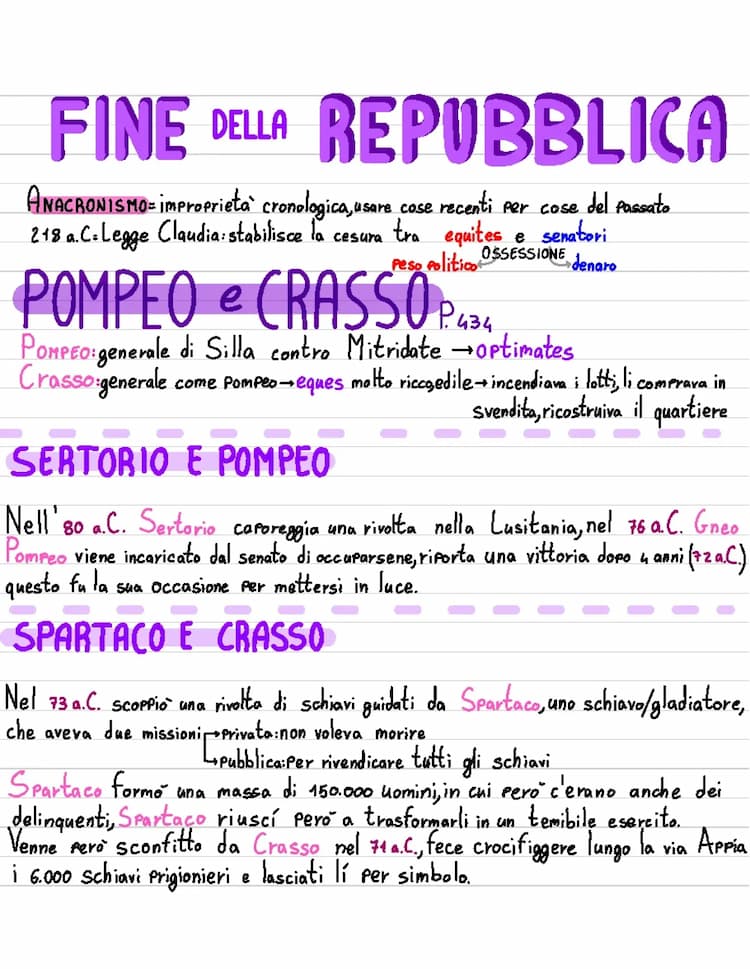 FINE DELLA REPUBBLICA
ANACRONISMO=improprietà cronologica,usare cose recenti per cose del passato
218 a.C=Legge Claudia:stabilisce la cesura tra equites e senatori
peso politico OSSESSIONE denaro
POMPEO e CRASSO P.434
POMPEO:generale di Silla contro Mitridate →optimates
Crasso:generale come pompeo→eques molto ricco,edile→incendiava i lotti,li comprava in
svendita,ricostruiva il quartiere
SERTORIO E POMPEO
Nell'80 a.C. Sertorio caporeggia una rivolta nella Lusitania,nel 76 a.C. Gneo
Pompeo viene incaricato dal senato di occuparsene,riporta una vittoria dopo 4 anni(72 a.C.)
questo fu la sua occasione per mettersi in luce.
SPARTACO E CRASSO
Nel 73 a.C. scoppiò una rivolta di schiavi guidati da Spartaco,uno schiavo/gladiatore,
che aveva due missioni→privata:non voleva morire
→pubblica:per rivendicare tutti gli schiavi
Spartaco formò una massa di 150.000 uomini,in cui però c'erano anche dei
delinquenti,Spartaco riuscí però a trasformarli in un temibile esercito.
Venne però sconfitto da Crasso nel 71 a.C.,fece crocifiggere lungo la via Appia
i 6.000 schiavi prigionieri e lasciati lí per simbolo.